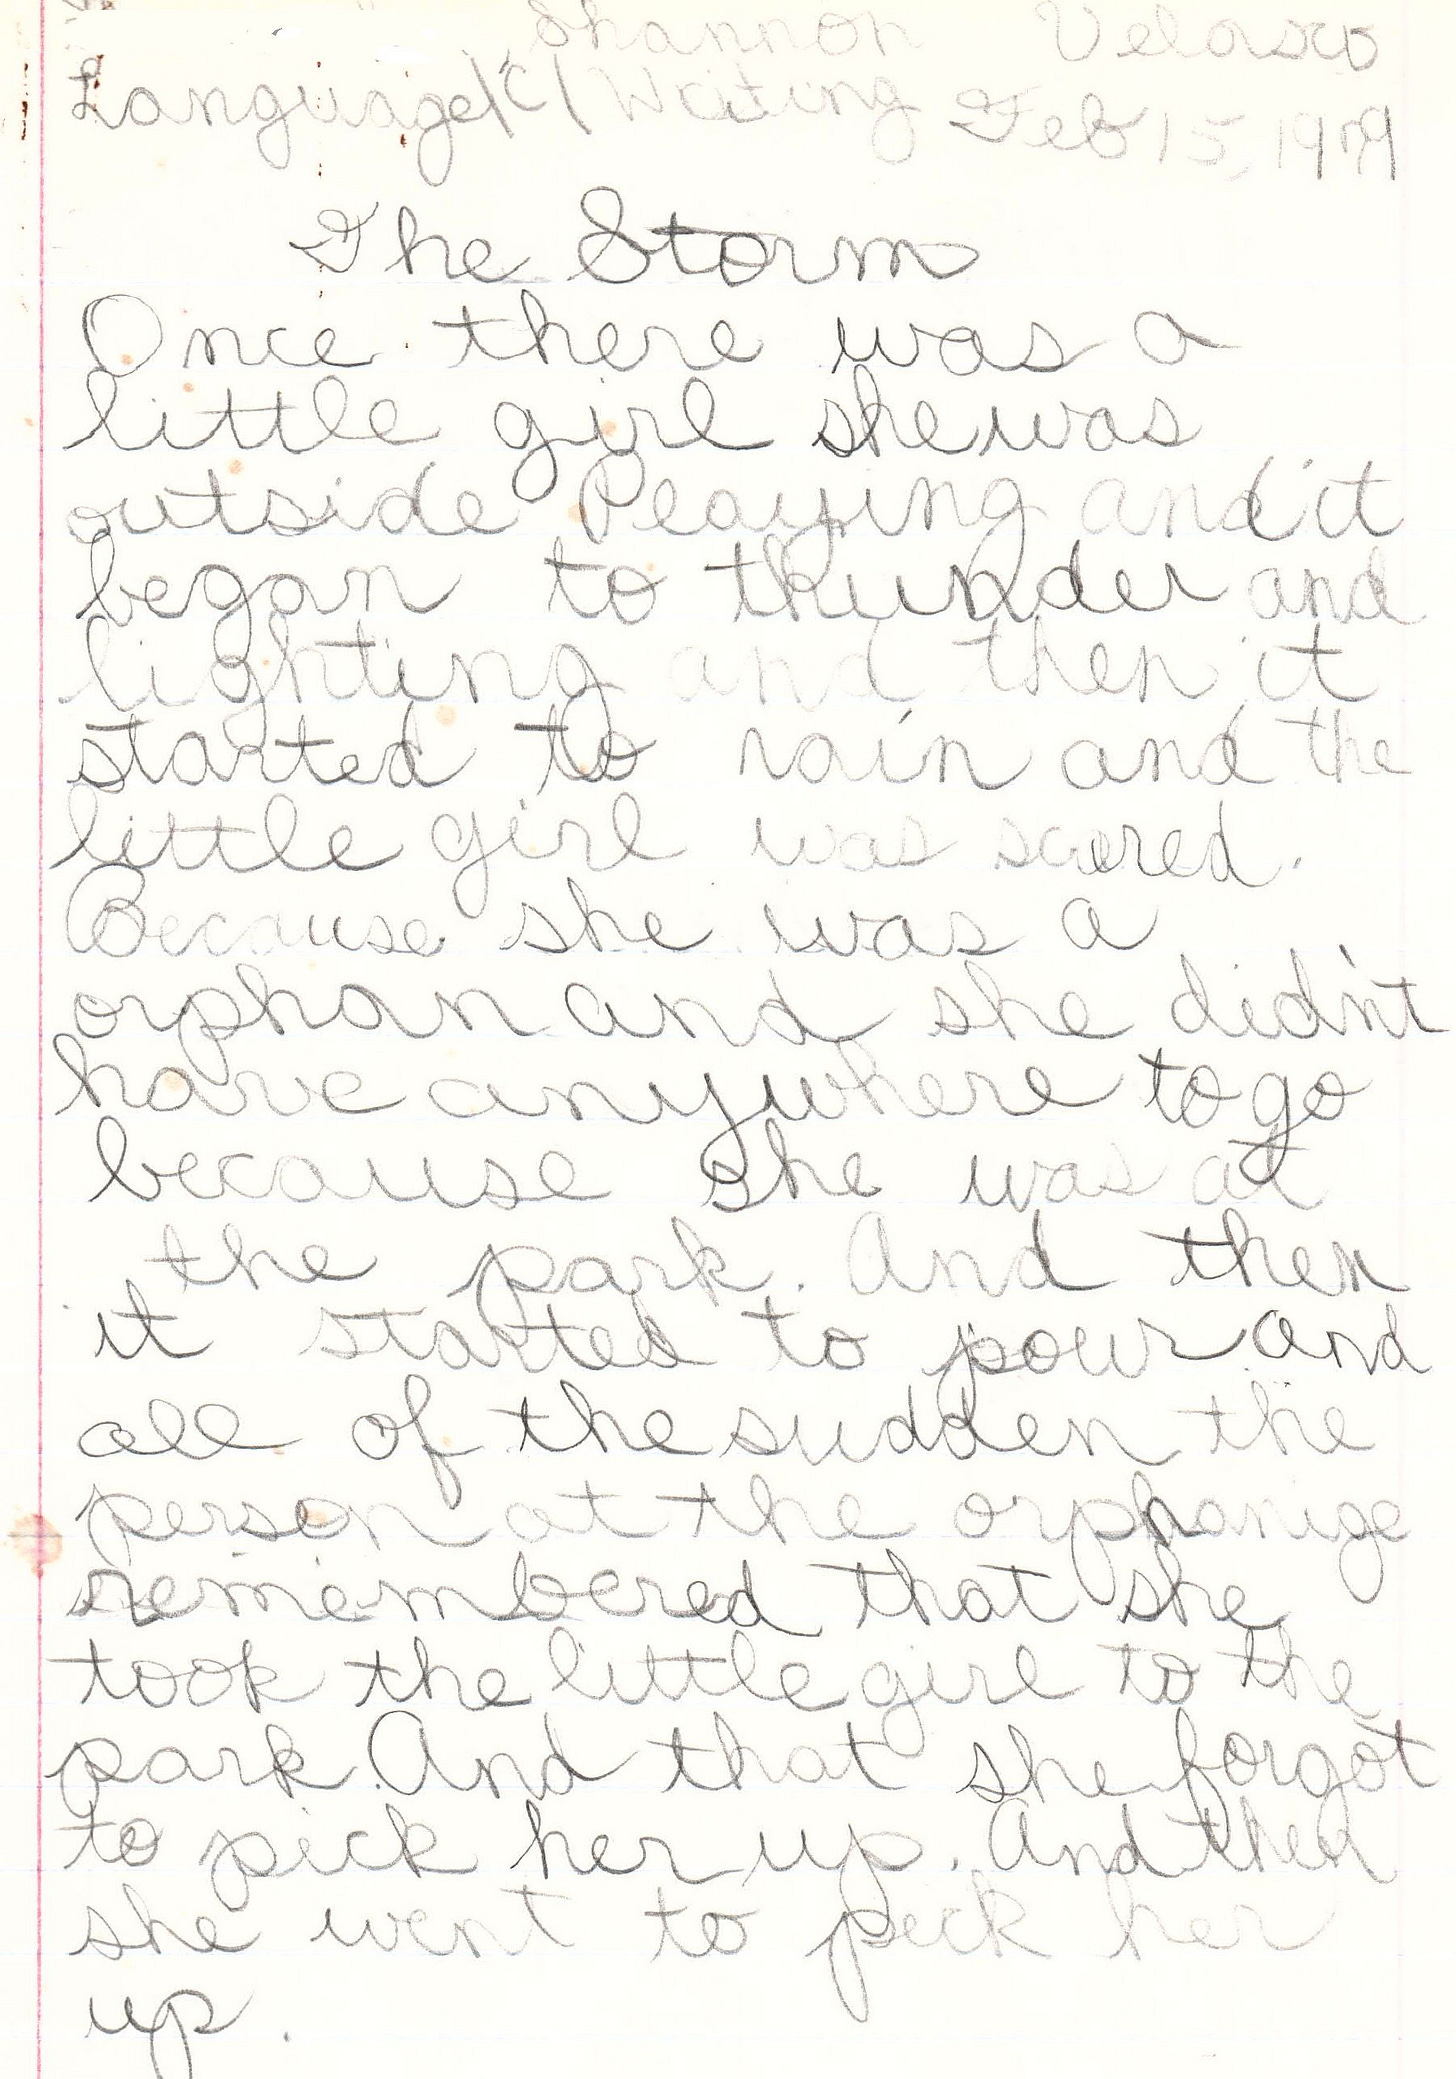 Shannon Velasco
Language/C/Writing Feb 15, 1979
The Storm
Once there was a
little girl she was
outside Peaying and it
began to thunder and
lighting and then it
started to rain and the
little girl was scared.
Because she was a
orphan and she didn't
have anywhere to go
because she was at
the park. And then
it started to pour and
all of the sudden the
person at the orphanige
remembered that she
took the little girl to the
park. And that she forgot
to pick her up. And then
she went to pick her
up.